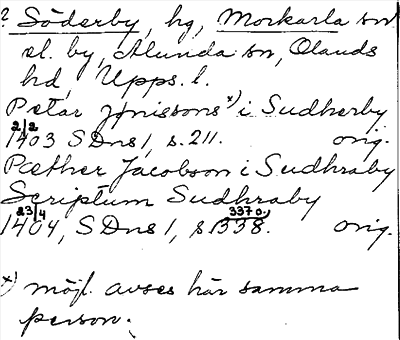 ? Söderby, hg, Morkarla sn
el. by, Alunda sn, Olands
hd, Upps. l.
Petar Jönissons x) i Sudherby
1403 2/2 SDns 1, s. 211. orig.
Pæther Jacobson i Sudhraby
Scriptum Sudhraby
1404 23/4, SDns 1, s 338. 337 o. orig.
x) möjl. avses här samma
person.